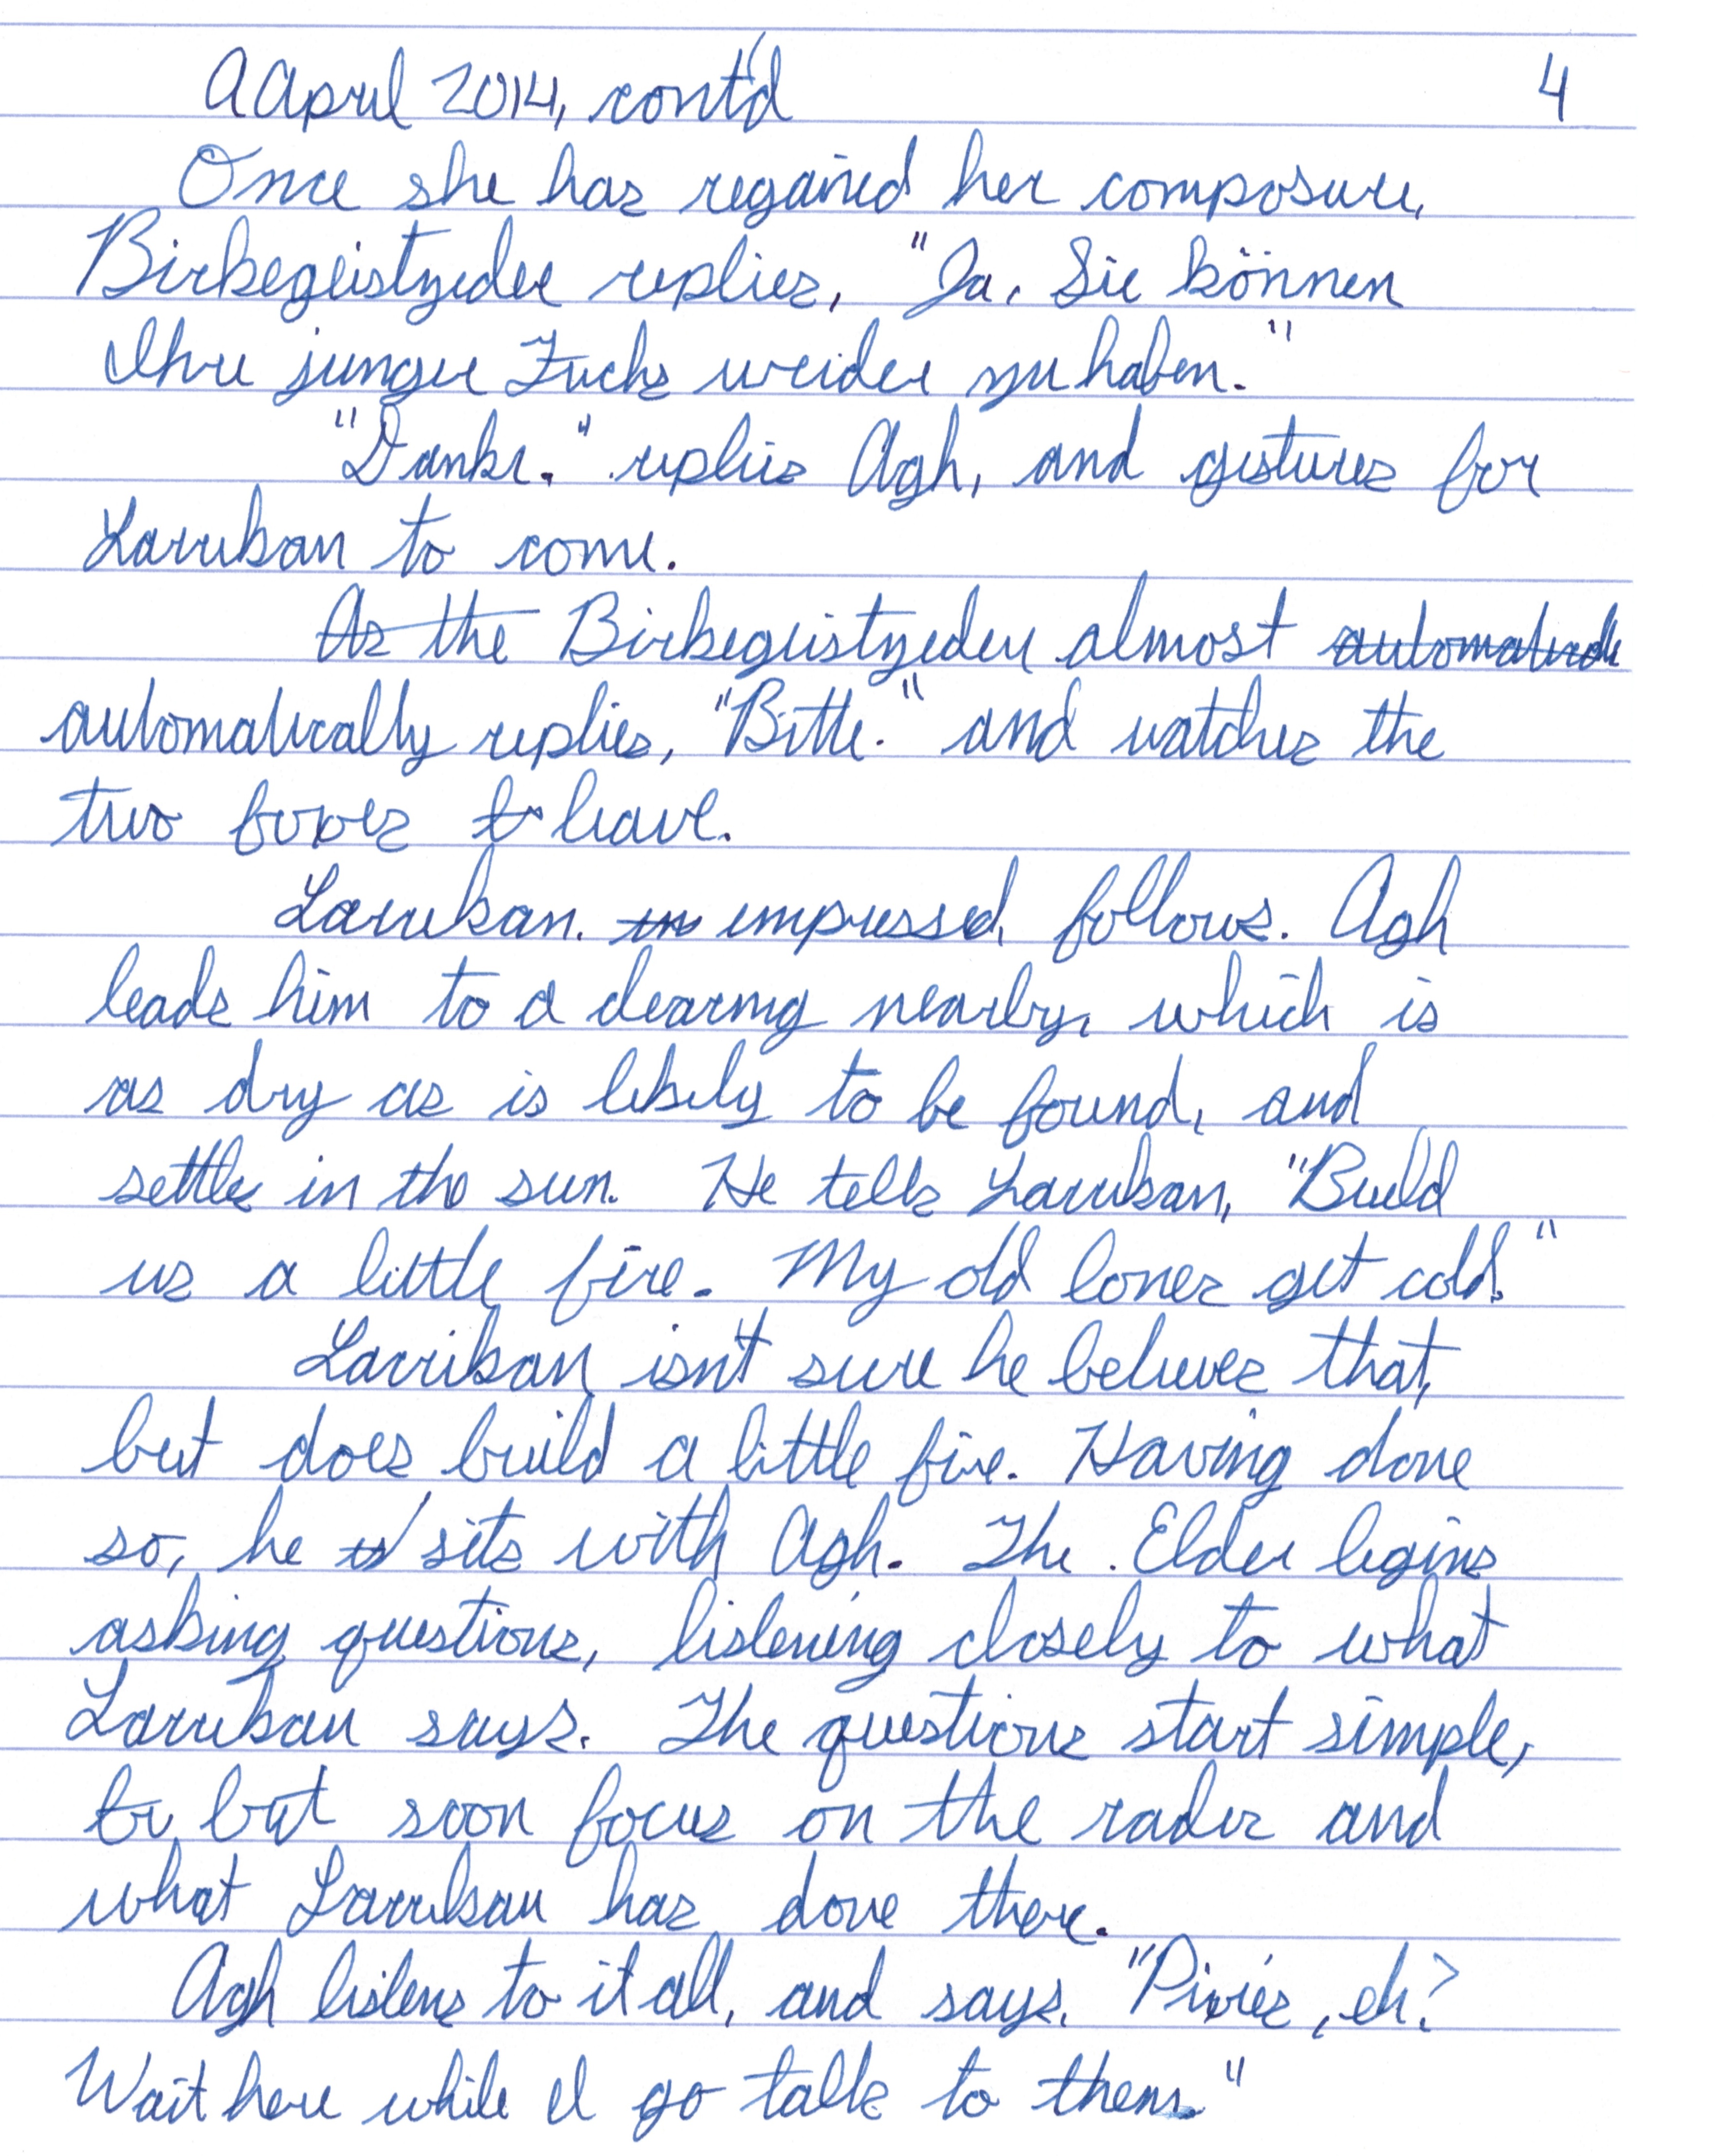 9 April 2014, cont'd 4
Once she has regained her composure,
Birkegeistzeder replies, "Ja, Sie können
Ihre junger Fuchs weider zu haben."
"Danke." replies Agh, and gestures for
Larrikan to come.
As the Birkegeistzeder almost
automatically replies, "Bitte." and watches the
two foxes to leave.
Larrikan, im impressed, follows. Agh
leads him to a clearing nearby, which is
as dry as is likely to be found, and
settles in the sun. He tells Larrikan, "Build
us a little fire. My old bones get cold."
Larrikan isn't sure he believes that,
but does build a little fire. Having done
so, he is sits with Agh. The Elder begins
asking questions, listening closely to what
Larrikan says. The questions start simple,
bu but soon focus on the rades and
what Larrikan has done there.
Agh listens to it all, and says, "Pixies, eh?
Wait here while I go talk to them."